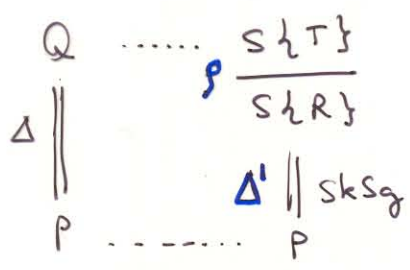 Q ...... S{T}
ρ
S{R}
Δ
Δ' || SkSg
P ........ P